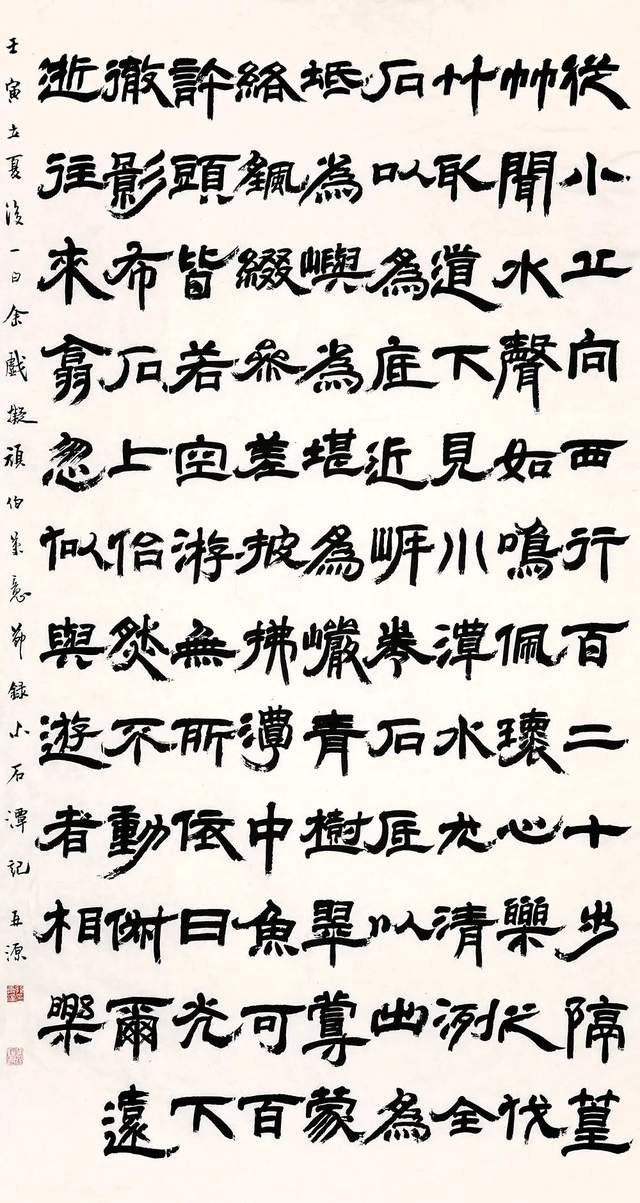 從小丘向西行百二十步隔篁
竹聞水聲如鳴佩環心樂之伐
竹取道下見小潭水尤清洌全
石以為底近岸卷石底以出為
坻為嶼為堪為巖青樹翠蔓蒙
絡飄綴參差披拂潭中魚可百
許頭皆若空游無所依日光下
徹影布石上佁然不動俶爾遠
逝往來翕忽似與遊者相樂
壬寅立夏後一日余戲擬頑伯筆意節録小石潭記 源